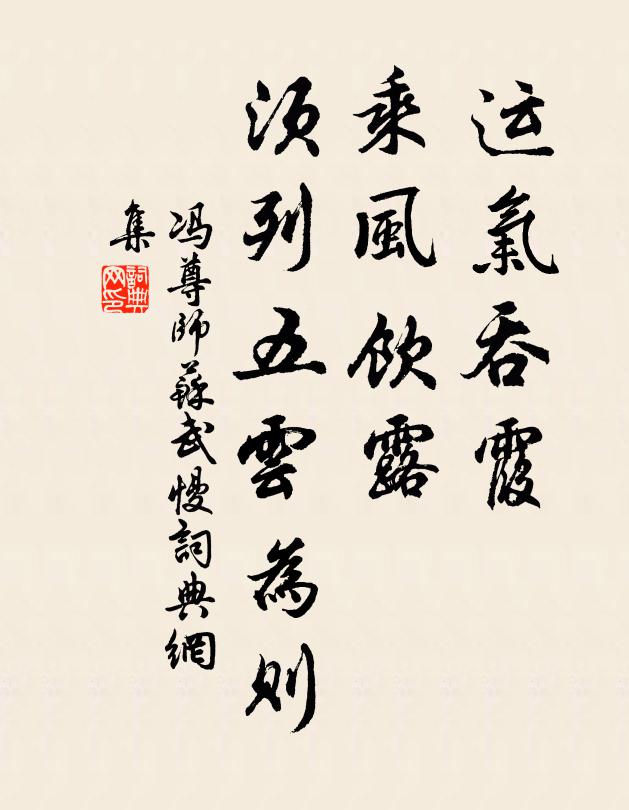 运氣吞霞
乘風飲露
須列五雲為則
冯尊師蘇武慢詞典網
集
詞典
网印